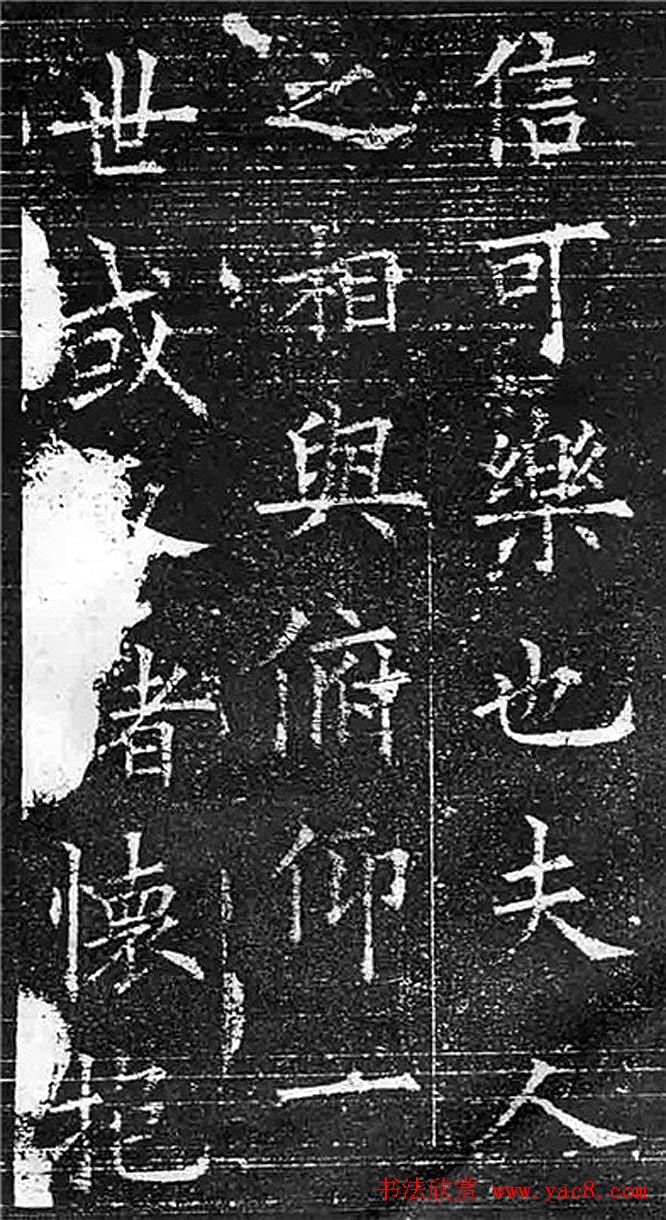 信可樂也夫人
之相與俯仰一
世或諸懷抱
书法欣赏 www.yac8.com